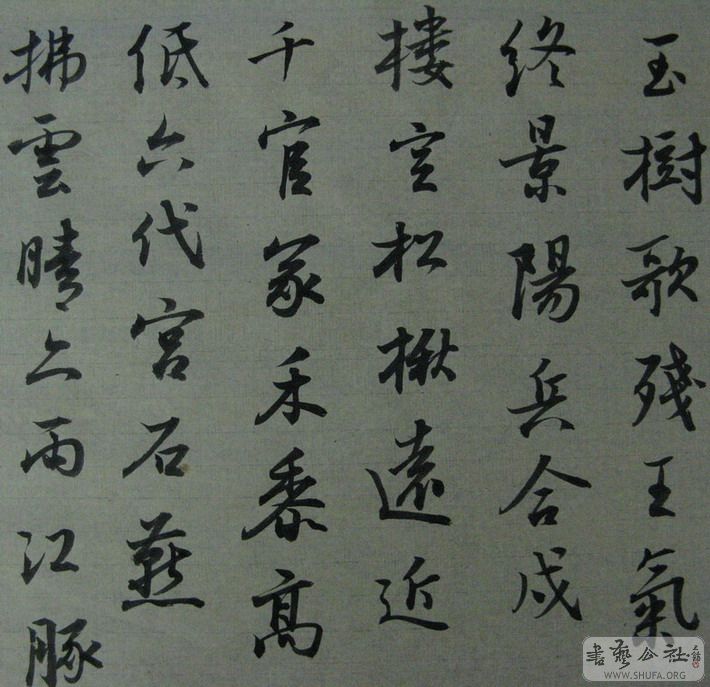 玉樹歌殘王氣
終景陽兵合戍
樓空松楸遠近
千官冢禾黍高
低六代宮石燕
拂雲晴亦雨江豚
書藝公社
WWW.SHUFA.ORG